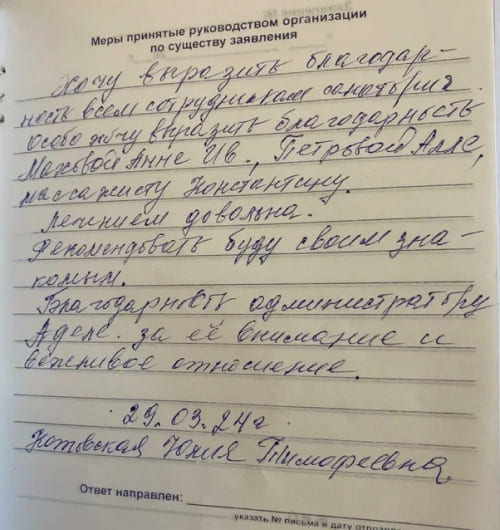 Меры принятые руководством организации
по существу заявления
Хочу выразить благодар-
ность всем сотрудникам санатория.
Особо хочу выразить благодарность
Маховой Анне Ив., Петровой Алле,
массажисту Константину.
Лечением довольна.
Рекомендовать буду своим зна-
комым.
Благодарность администратору
Аделе за её внимание и
вежливое отношение.
29.03.24г
Юлия Тимофеевна
Ответ направлен:
указать № письма и дату